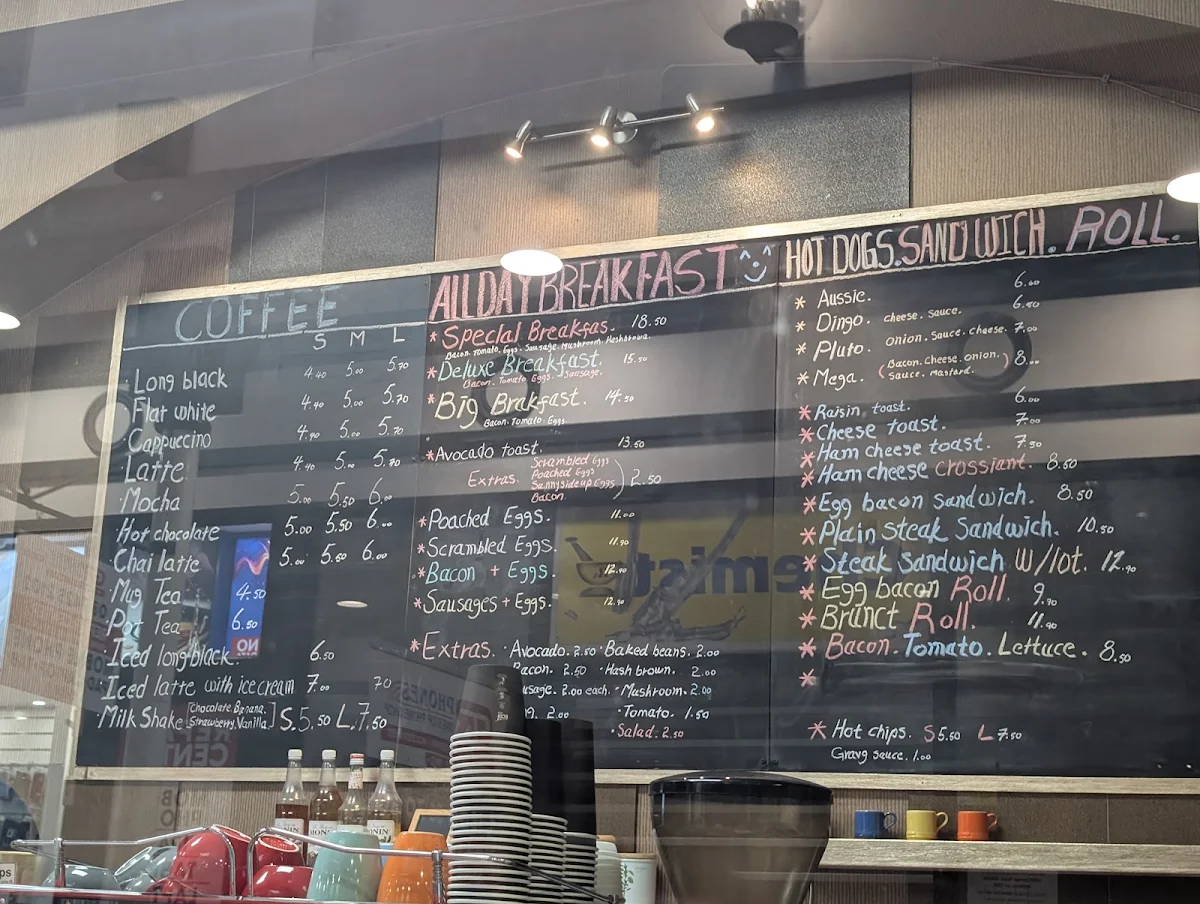 COFFEE
S M L
Long black 4.40 5.00 5.70
Flat white 4.40 5.00 5.70
Cappuccino 4.90 5.00 5.70
Latte 4.40 5.00 5.70
Mocha 5.00 5.50 6.00
Hot chocolate 5.00 5.50 6.00
Chai latte 5.00 5.50 6.00
Mug Tea 4.50
Pot Tea 6.50
Iced long black. 6.50
Iced latte with ice cream 7.00
Milk Shake [Chocolate, Banana, Strawberry, Vanilla.] S.5.50 L.7.50
ALL DAY BREAKFAST
* Special Breakfas. 18.50
Bacon. Tomato. Eggs. Sausage. Mushroom. Hashbrown.
* Deluxe Breakfast. 15.50
Bacon. Tomato. Eggs. Sausage.
* Big Brakfast. 14.50
Bacon. Tomato. Eggs.
* Avocado toast. 13.50
Extras. Scrambled Eggs
Poached Eggs
Sunnyside up Eggs
Bacon. ) 2.50
* Poached Eggs. 11.00
* Scrambled Eggs. 11.90
* Bacon + Eggs. 12.90
* Sausages + Eggs. 12.90
* Extras. · Avocado. 2.50 · Baked beans. 2.00
Bacon. 2.50 · Hash brown. 2.00
usage. 2.00 each. · Mushroom. 2.00
2.00 · Tomato. 1.50
· Salad. 2.50
HOT DOGS. SANDWICH. ROLL.
* Aussie. 6.00
* Dingo. cheese. Sauce. 6.50
* Pluto. onion. Sauce. cheese. 7.00
* Mega. (Bacon. Cheese. onion. Sauce. Mastard.) 8.00
* Raisin toast. 6.00
* Cheese toast. 7.00
* Ham cheese toast. 7.50
* Ham cheese crossiant. 8.50
* Egg bacon sandwich. 8.50
* Plain Steak Sandwich. 10.50
* Steak Sandwich W/lot. 12.90
* Egg bacon Roll. 9.90
* Brunct Roll. 11.90
* Bacon. Tomato. Lettuce. 8.50
*
* Hot chips. S 5.50 L 7.50
Gravg sauce. 1.00
emist
NO
MONIN